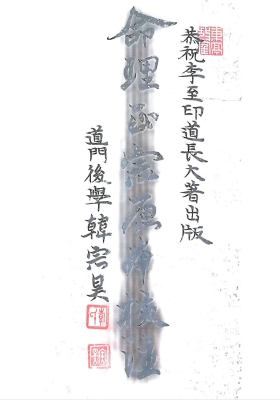 恭祝李至印道長大著出版
命理正宗原校注
道門後學韓宗昊